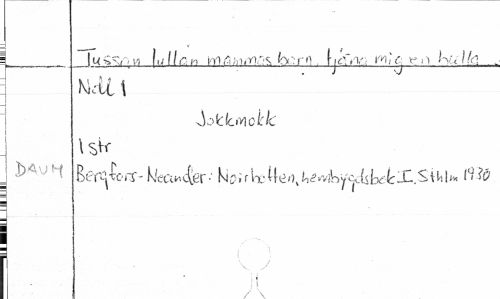 Tussan lullan mammas barn, tjäna mig en bulla
Ndl 1
Jokkmokk
1 str
DAUM
Bergfors-Neander: Norrbotten, hembygdsbok I. Sthlm 1930